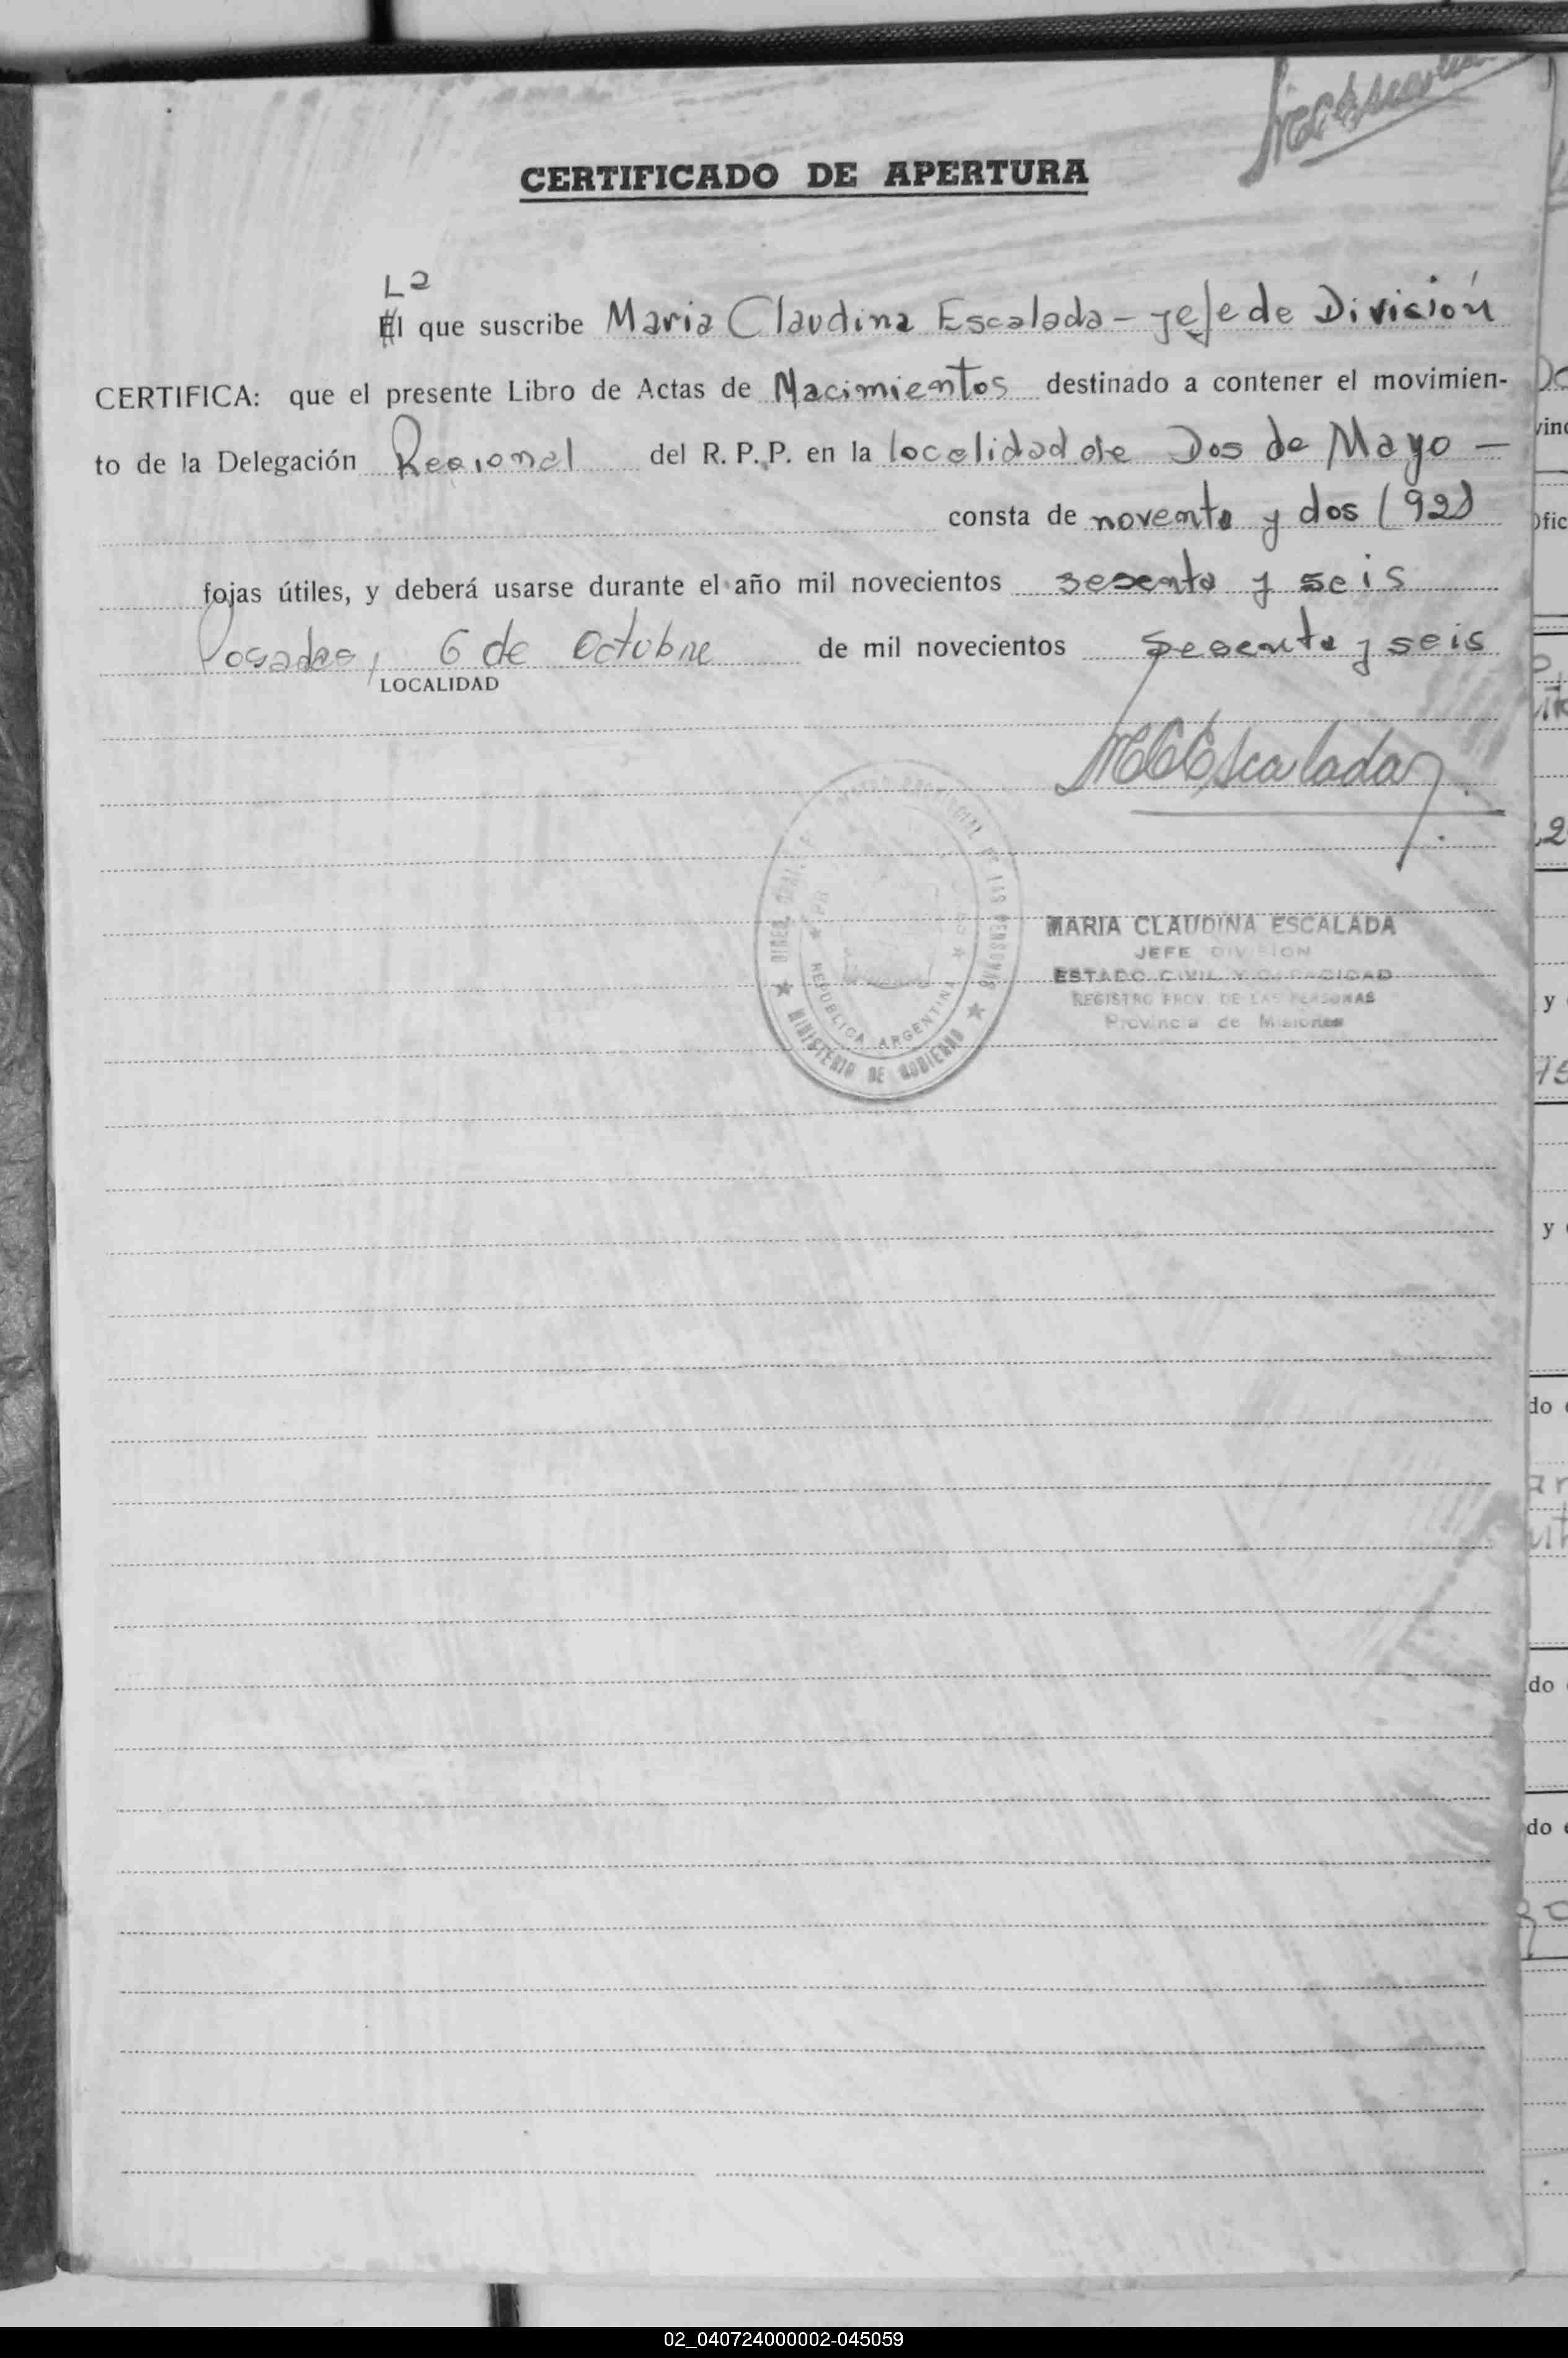 MCEscalada
CERTIFICADO DE APERTURA
La
El que suscribe Maria Claudina Escalada - jefe de División
CERTIFICA: que el presente Libro de Actas de Nacimientos destinado a contener el movimien-
to de la Delegación Regional del R. P. P. en la localidad de Dos de Mayo -
consta de noventa y dos (92)
fojas útiles, y deberá usarse durante el año mil novecientos sesenta y seis
Posadas, 6 de Octubre de mil novecientos sesenta y seis
LOCALIDAD
MCEscalada
MARIA CLAUDINA ESCALADA
JEFE DIVISION
ESTADO CIVIL Y CAPACIDAD
REGISTRO PROV. DE LAS PERSONAS
Provincia de Misiones
PROVINCIAL DE LAS PERSONAS
REPUBLICA ARGENTINA
MINISTERIO DE GOBIERNO
02_040724000002-045059